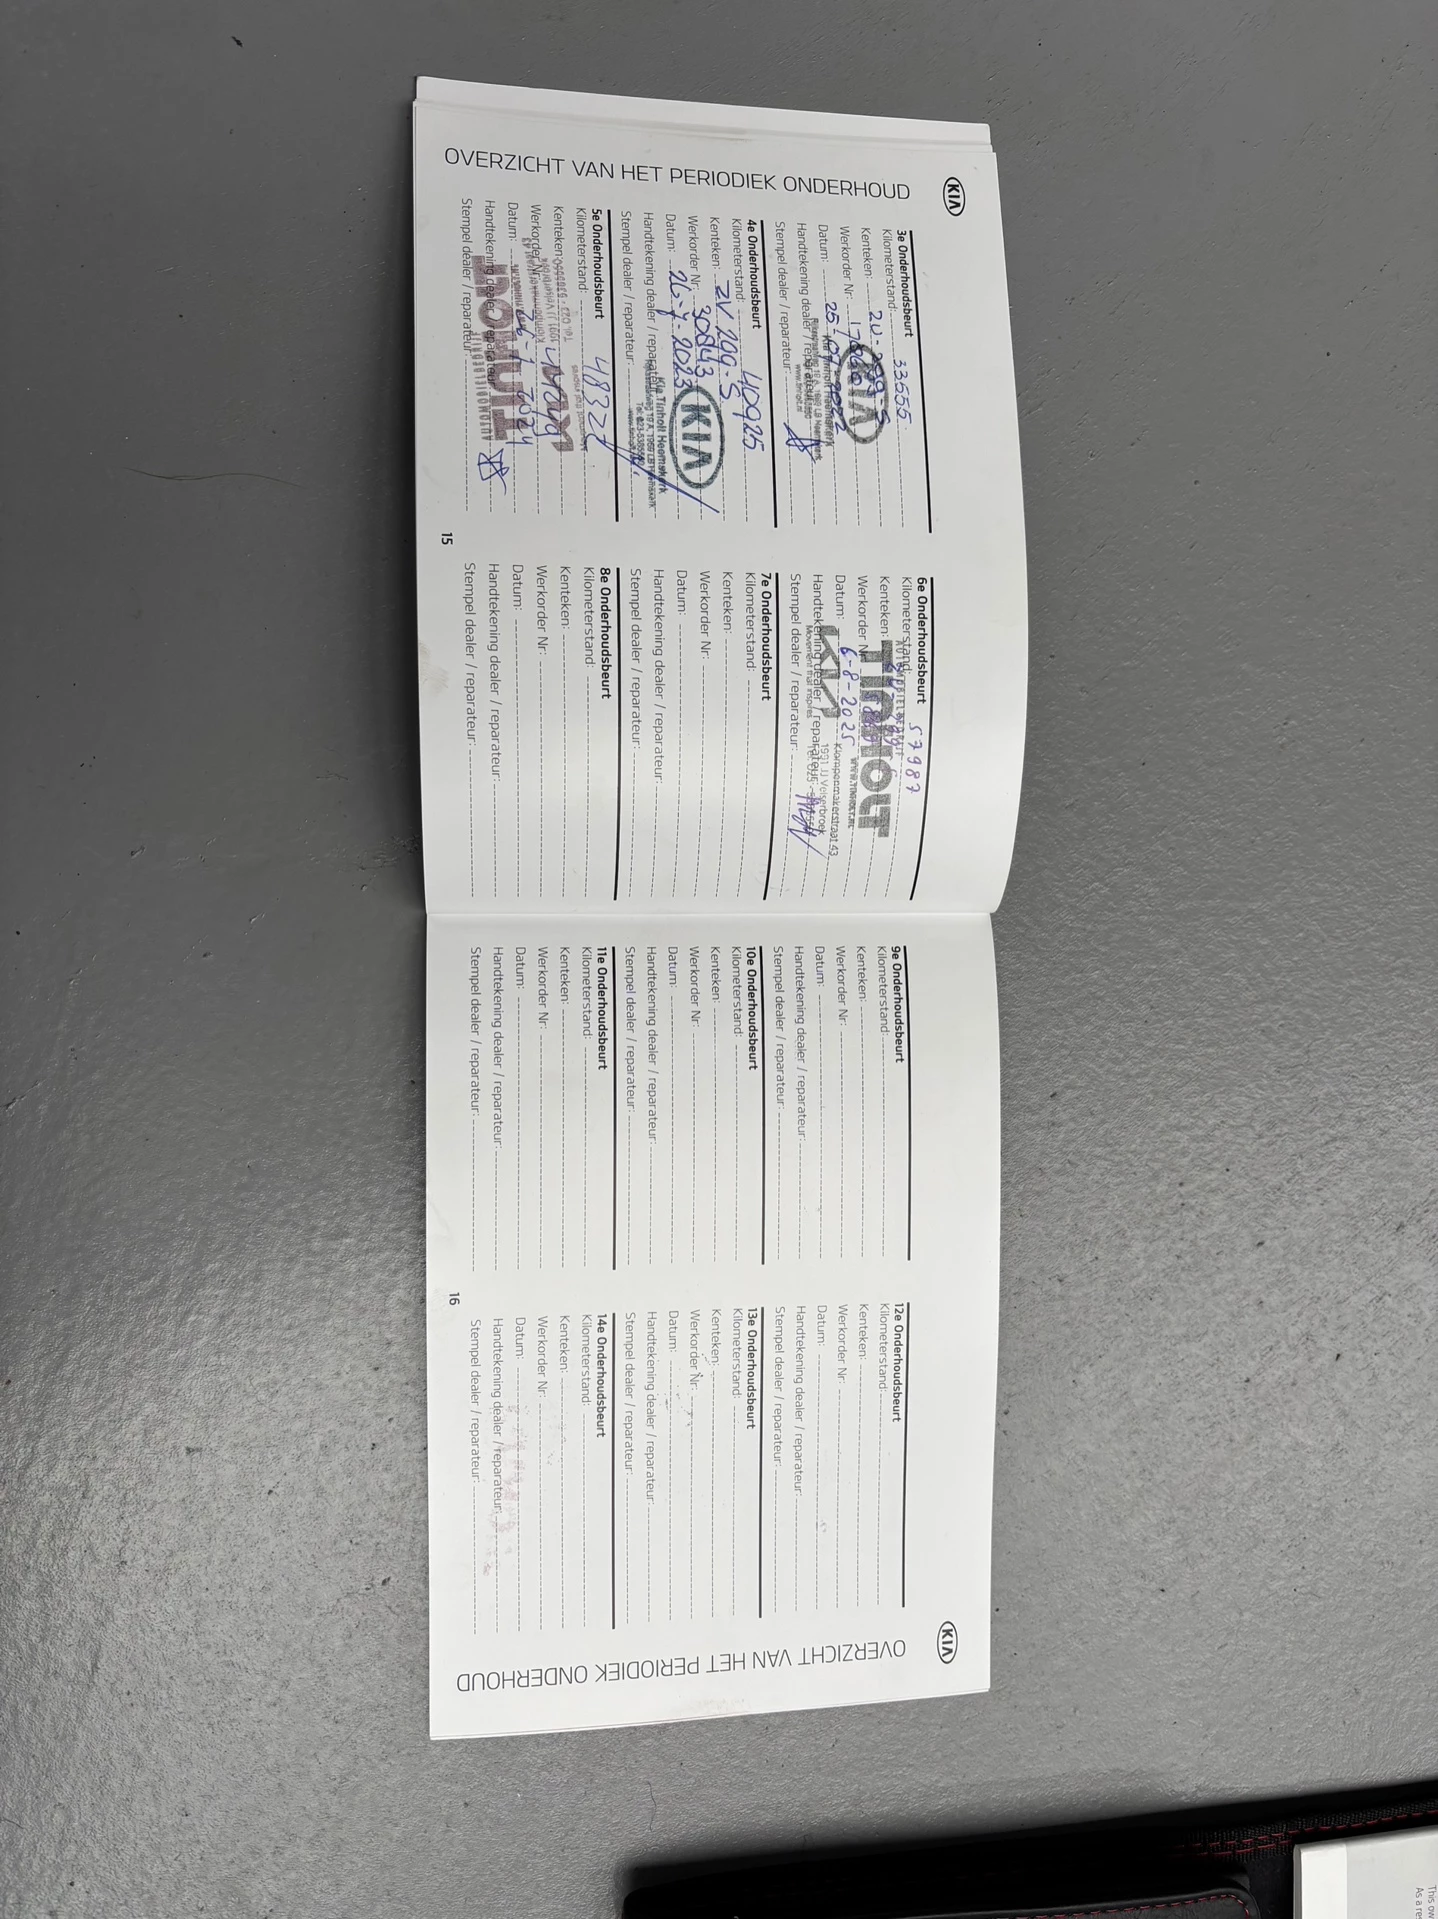 KIA
OVERZICHT VAN HET PERIODIEK ONDERHOUD
3e Onderhoudsbeurt
Kilometerstand: 33555
Kenteken:
Werkorder Nr:
Datum: 25-07-2022
Handtekening dealer / reparateur:
Stempel dealer / reparateur:
KIA
Kia Tinholt Heemskerk
www.tinholt.nl
4e Onderhoudsbeurt
Kilometerstand: 40925
Kenteken: ZV-299-S
Werkorder Nr: 30843
Datum: 26-7-2023
Handtekening dealer / reparateur:
Stempel dealer / reparateur:
KIA
Kia Tinholt Heemskerk
5e Onderhoudsbeurt
Kilometerstand:
Kenteken:
Werkorder Nr:
Datum: 2024
Handtekening dealer / reparateur:
Stempel dealer / reparateur:
TINHOLT
AUTOMOBIELBEDRIJF
15
6e Onderhoudsbeurt
Kilometerstand: 57987
Kenteken:
Werkorder Nr:
Datum: 6-8-2025
Handtekening dealer / reparateur:
Stempel dealer / reparateur:
AUTOMOBIELBEDRIJF
TINHOLT
WWW.TINHOLT.NL
KIA
Movement that inspires
Klompenmakerstraat 43
1991 JJ Velserbroek
7e Onderhoudsbeurt
Kilometerstand:
Kenteken:
Werkorder Nr:
Datum:
Handtekening dealer / reparateur:
Stempel dealer / reparateur:
8e Onderhoudsbeurt
Kilometerstand:
Kenteken:
Werkorder Nr:
Datum:
Handtekening dealer / reparateur:
Stempel dealer / reparateur:
9e Onderhoudsbeurt
Kilometerstand:
Kenteken:
Werkorder Nr:
Datum:
Handtekening dealer / reparateur:
Stempel dealer / reparateur:
10e Onderhoudsbeurt
Kilometerstand:
Kenteken:
Werkorder Nr:
Datum:
Handtekening dealer / reparateur:
Stempel dealer / reparateur:
11e Onderhoudsbeurt
Kilometerstand:
Kenteken:
Werkorder Nr:
Datum:
Handtekening dealer / reparateur:
Stempel dealer / reparateur:
16
12e Onderhoudsbeurt
Kilometerstand:
Kenteken:
Werkorder Nr:
Datum:
Handtekening dealer / reparateur:
Stempel dealer / reparateur:
13e Onderhoudsbeurt
Kilometerstand:
Kenteken:
Werkorder Nr:
Datum:
Handtekening dealer / reparateur:
Stempel dealer / reparateur:
14e Onderhoudsbeurt
Kilometerstand:
Kenteken:
Werkorder Nr:
Datum:
Handtekening dealer / reparateur:
Stempel dealer / reparateur:
KIA
OVERZICHT VAN HET PERIODIEK ONDERHOUD
This ow
As a re